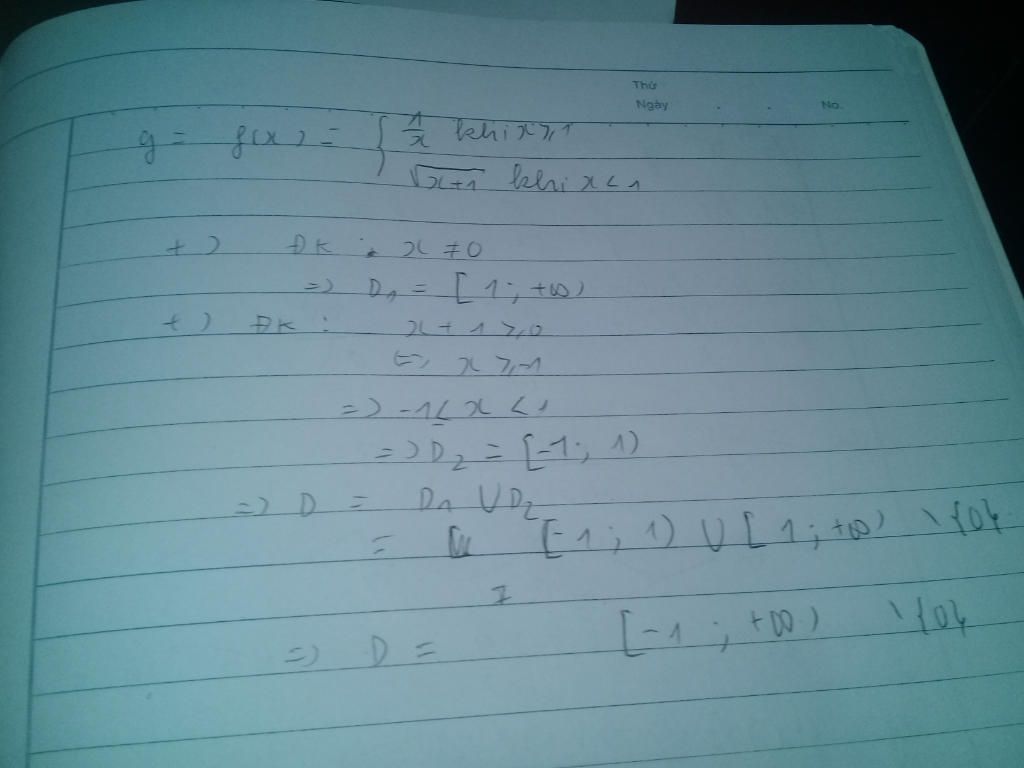 Thứ
Ngày . . No.
y = f(x) = { 1/x khi x ⩾ 1
√(x+1) khi x < 1
+) ĐK : x ≠ 0
=> D₁ = [1; +∞)
+) ĐK : x + 1 ⩾ 0
<=> x ⩾ -1
=> -1 ≤ x < 1
=> D₂ = [-1; 1)
=> D = D₁ ∪ D₂
= [-1; 1) ∪ [1; +∞) \ {0}
=> D = [-1; +∞) \ {0}